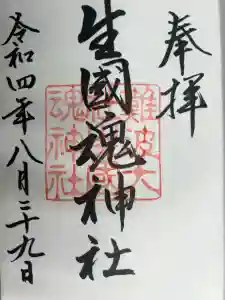 奉拝
生國魂神社
令和四年八月二十九日
難波大
魂神社